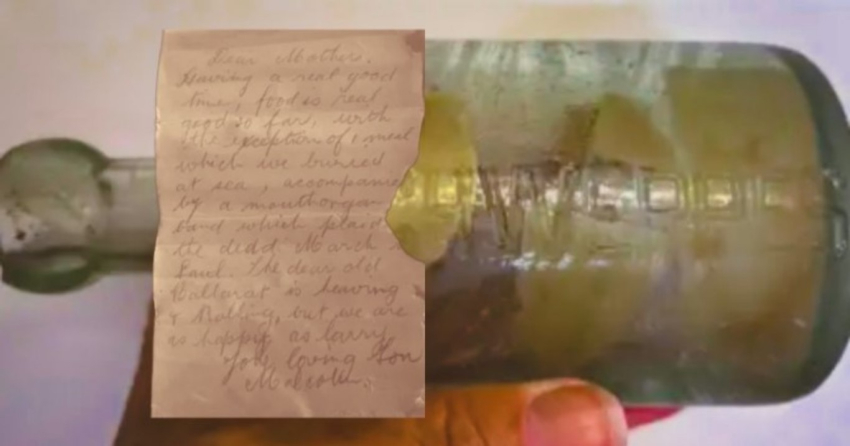 Dear Mother,
Having a real good
time, food is real
good so far, with
the exception of 1 meal
which we buried
at sea, accompanied
by a mouthorgan
band which plaid
the dedd March
Saul. The dear old
Ballarat is heaving
& Rolling, but we are
as happy as larry
Your loving Son
Malcolm.